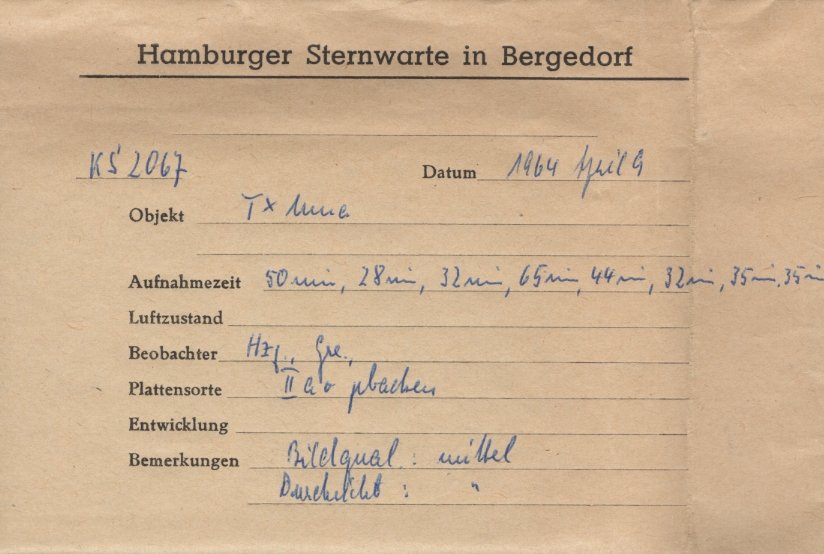 Hamburger Sternwarte in Bergedorf
KS 2067 Datum 1964 April 9
Objekt TX Uma
Aufnahmezeit 50 min, 28 min, 32 min, 65 min, 44 min, 32 min, 35 min, 35 min
Luftzustand
Beobachter Hzg., Gre.,
Plattensorte II a o gebacken
Entwicklung
Bemerkungen Bildqual: mittel
Durchsicht: "